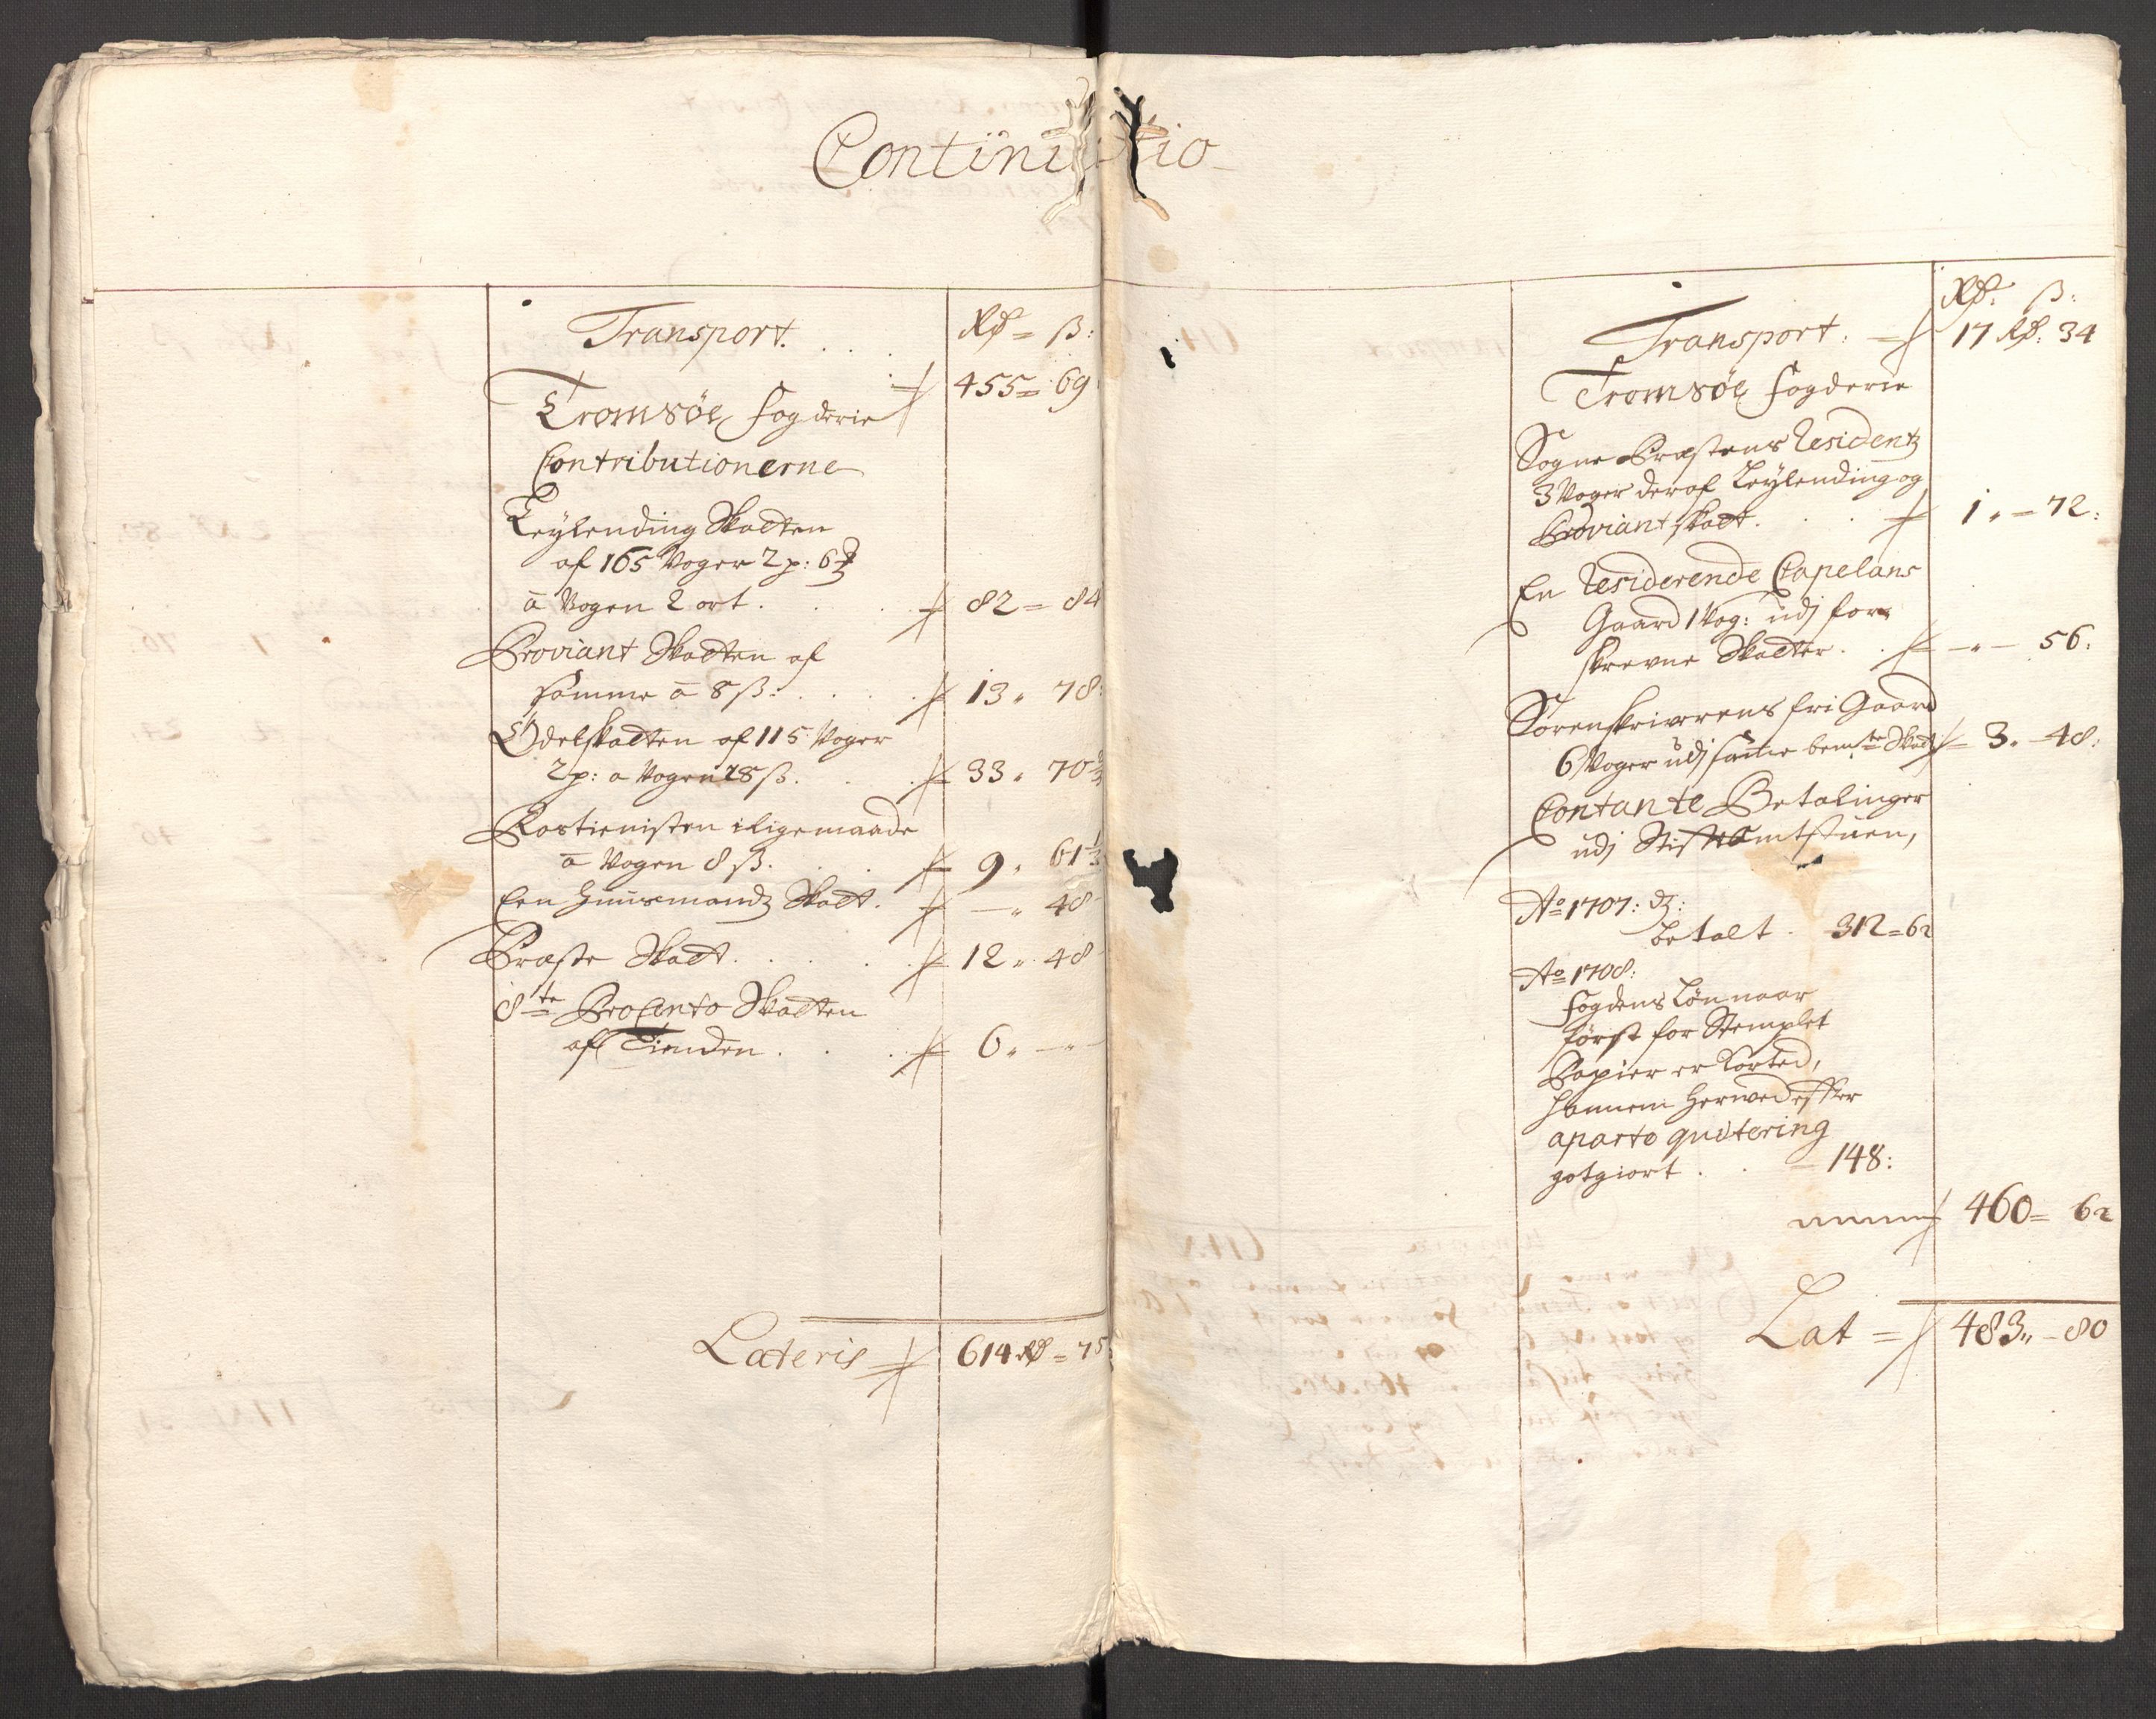 Continuatio
Transport. . . . Rd = ß:
455 = 69
Tromsöe Fogderie
Contributionerne
Leÿlending Skatten
af 165 Woger 2 p: 6
à Wogen 2 ort . . . 82 = 84
Proviant Skatten af
samme à 8 ß: . . . . 13 „ 78:
Odelskatten af 115 Woger
2 p: a Wogen 28 ß. . . . 33 „ 70 2/3
Rostienisten iligemaade
à Wogen 8 ß. . . . 9 „ 61 1/3
Een Huusmandz Skatt. — „ 48
Præste Skatt. . . . . 12 „ 48
8te Procento Skatten
aff Tienden . . . . 6 „ — „ —
Lateris 614 Rd = 75
Rd. ß:
Transport: = 17 Rd: 34
Tromsöe Fogderie
Sogne Præstens Residentz
3 Woger deraf Leÿlending og
Proviant skatt. . . . 1 „ — 72:
En Residerende Capelans
Gaard 1 Wog: udj for=
skrevne Skatter. . — „ — 56:
Sorenskriverens fri Gaard
6 Woger udj samme bemte Skatt = 3. — 48:
Contante Betalinger
udj Stiftamtstuen,
Ao 1707:
betalt. 312 = 62
Ao 1708:
Fogdens Lön naar
først for Stemplet
Papier er korted,
hannem herved effter
aparte quitering
gotgiort . . — 148:
460 = 62
Lat = 483 „ — 80